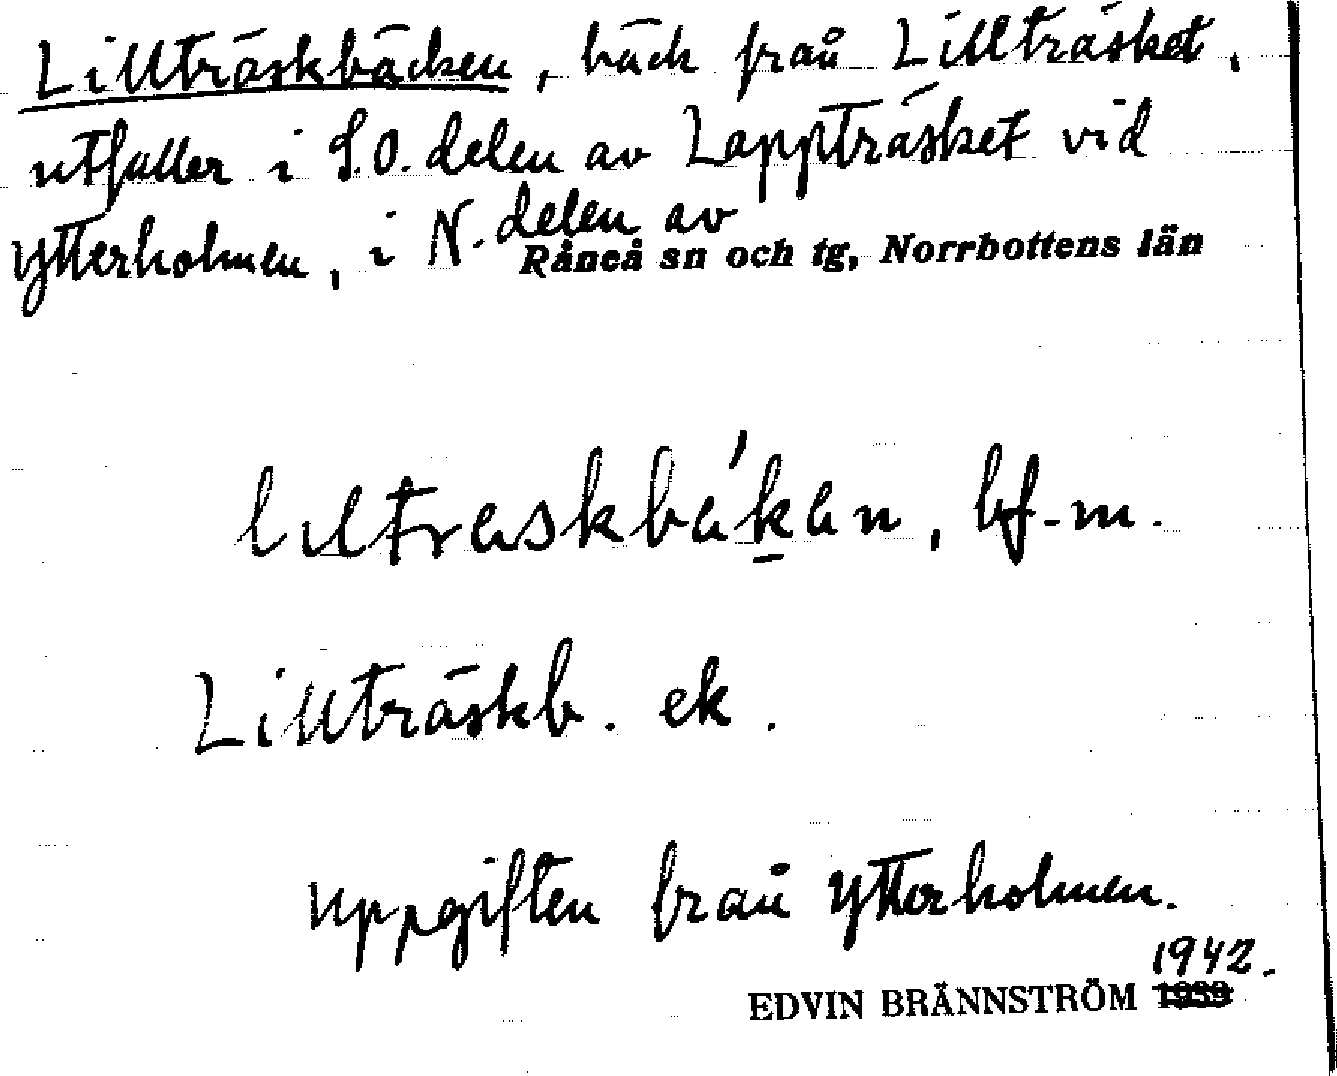 Lillträskbäcken, bäck från Lillträsket,
utfaller i S.O. delen av Lappträsket vid
Ytterholmen, i N. delen av
Råneå sn och tg, Norrbottens län
bf. m.
Lillträskb. ek.
Uppgiften från Ytterholmen.
1942.
EDVIN BRÄNNSTRÖM 1939